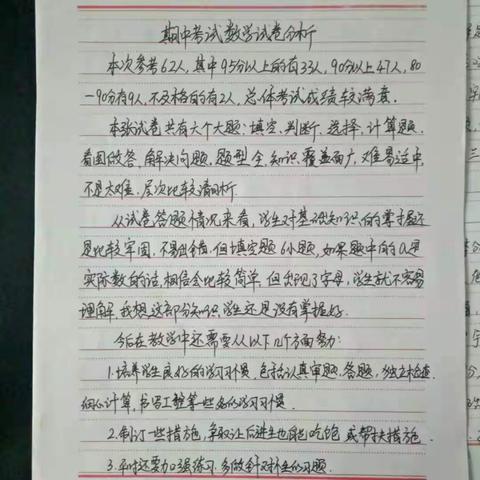 期中考试数学试卷分析
本次参考62人,其中95分以上的有33人,90分以上47人,80
-90分有9人,不及格的有2人,总体考试成绩较满意.
本张试卷共有六个大题:填空、判断、选择、计算题、
看图做答、解决问题,题型全,知识覆盖面广,难易适中,
不是太难.层次比较清晰
从试卷答题情况来看,学生对基础知识的掌握还
是比较牢固,不易出错.但填空题6小题,如果题中的a是
实际数的话,相信会比较简单,但出现了字母,学生就不容易
理解.我想这部分知识,学生还是没有掌握好.
今后在教学中还需要从以下几个方面努力:
1.培养学生良好的学习习惯,包括认真审题、答题,独立检查.
细心计算,书写工整等一些好的学习习惯.
2.制订一些措施,争取让后进生也能吃饱 或帮扶措施.
3.平时还要加强练习,多做针对性的习题.